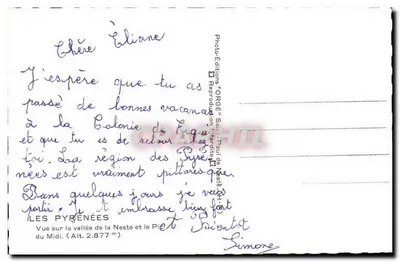 Chère Éliane
J'espère que tu as
passé de bonnes vacances
à la Colonie de
et que tu es de retour chez
toi. La région des Pyré
nées est vraiment pittoresque.
Dans quelques jours je vais
partir. Je t'embrasse bien fort
et Bientot
Simone
LES PYRÉNÉES
Vue sur la vallée de la Neste et le Pic
du Midi. (Alt. 2.877 m)
Photo-Éditions "ORGÉ" Saint-Paul de
Reproduction interdite